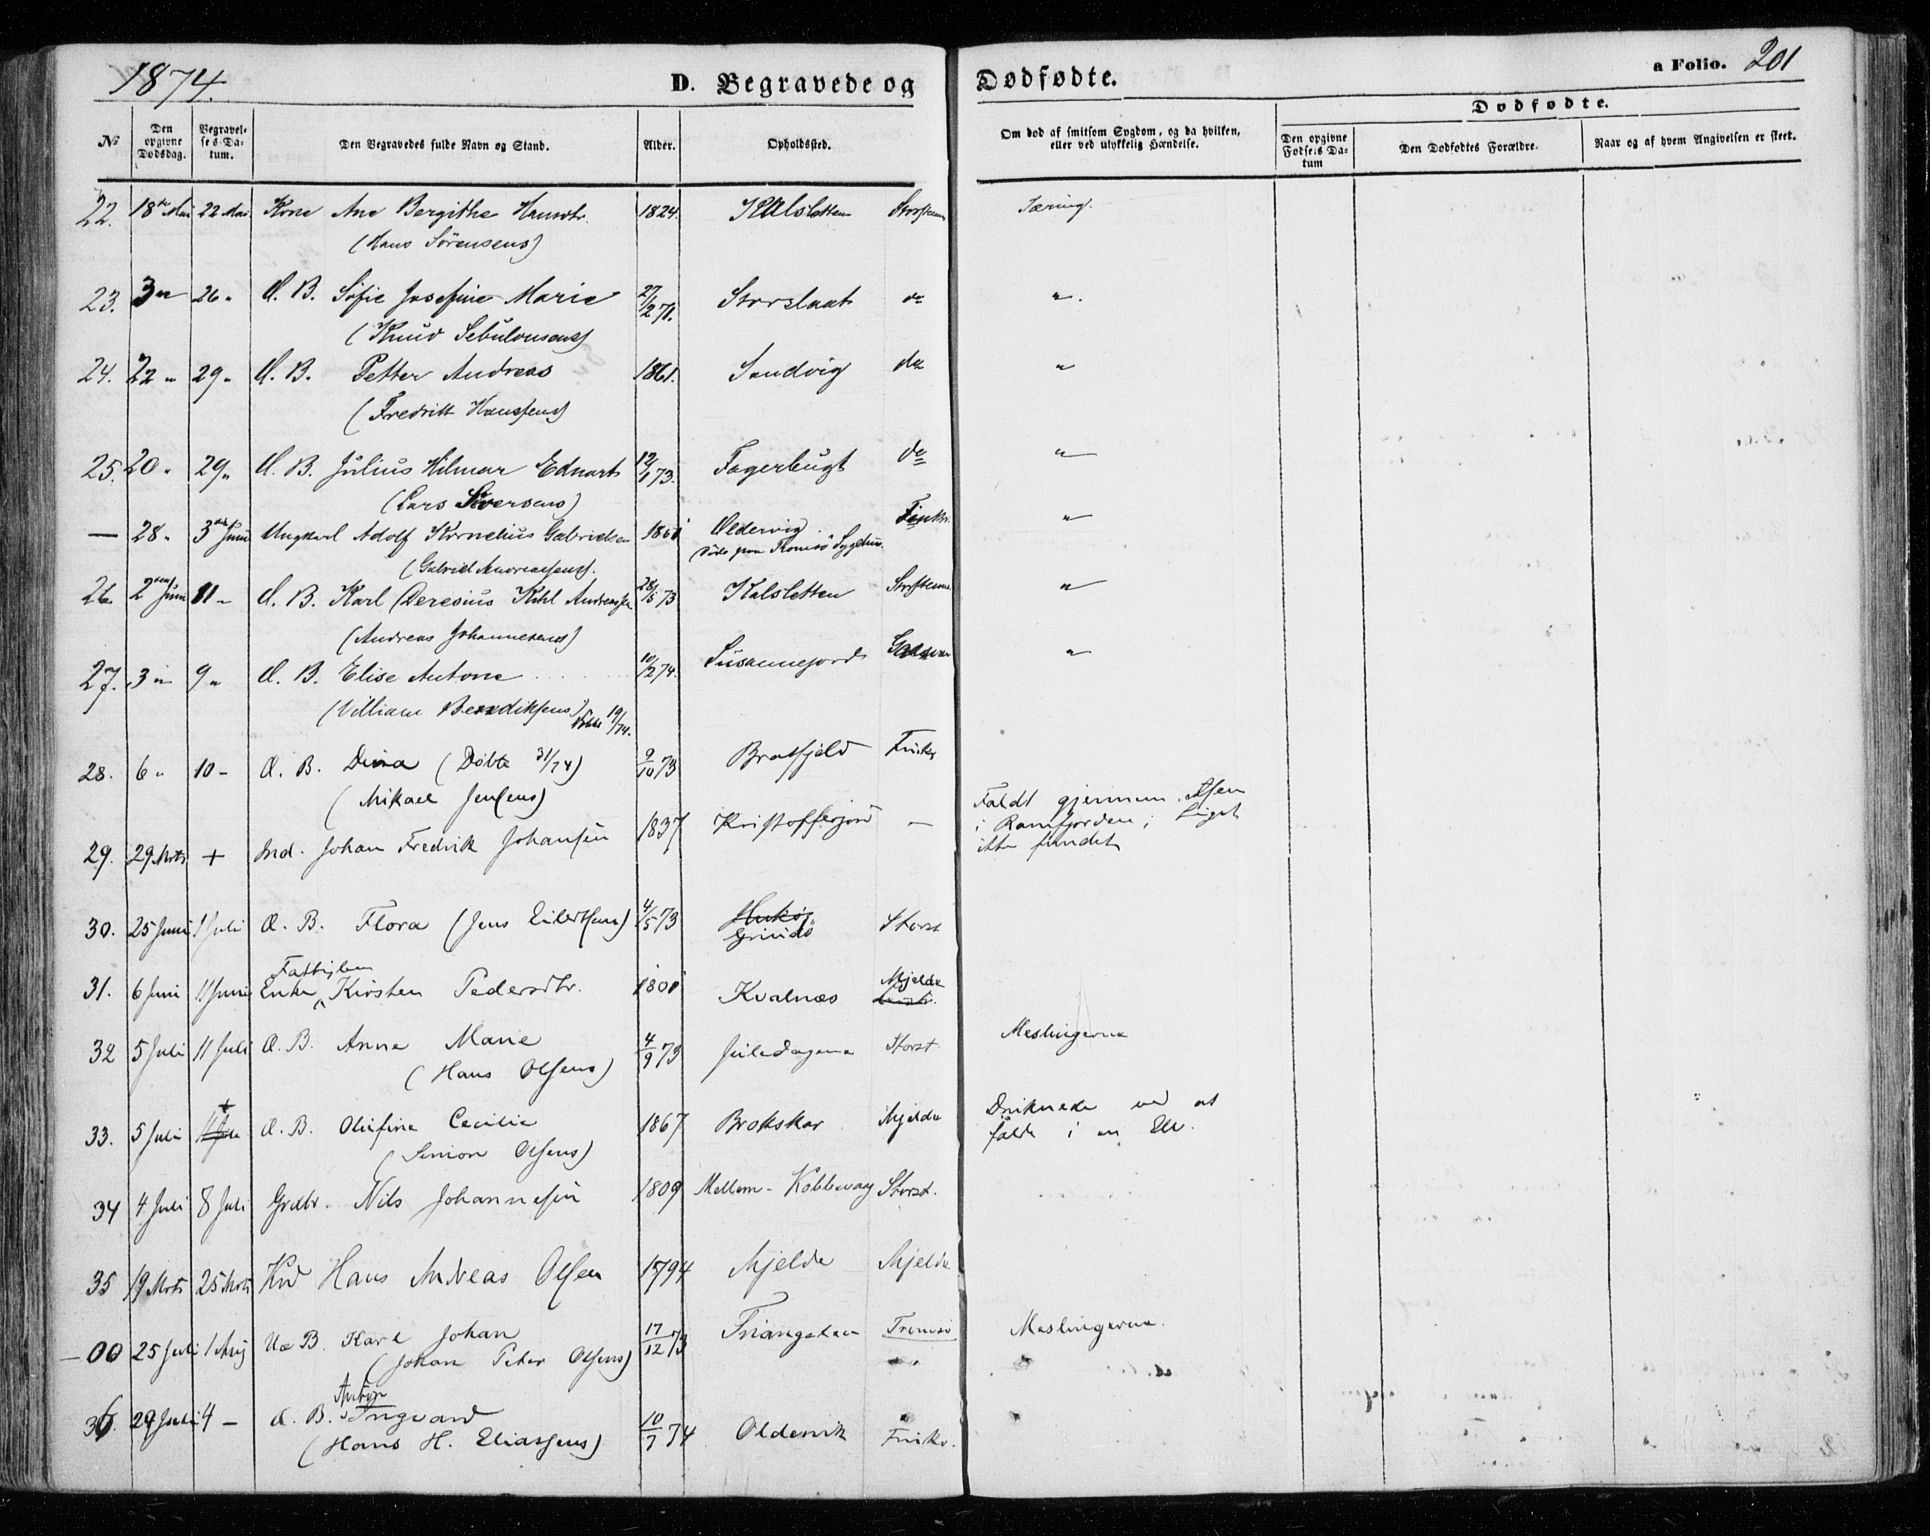 1874.
D. Begravede og
Dødfødte.
a Folio. 201
Dødfødte.
№
Den opgivne Dødsdag.
Begravelses-Datum.
Den Begravedes fulde Navn og Stand.
Alder.
Opholdssted.
Om død af smitsom Sygdom, og da hvilken, eller ved ulykkelig Hændelse.
Den opgivne Fødsels Datum
Den Dødfødtes Forældre.
Naar og af hvem Angivelsen er skeet.
22. 18de Mai 22 Mai Kone Ane Bergithe Hansdtr. 1824. Kalsletten Storstenn Tæring.
(Hans Sörensens)
23. 3 " 26 " Æ. B. Sofie Josefine Marie 27/12 71. Storslaat do "
(Knud Sebulonsens)
24. 22 " 29 " Æ. B. Petter Andreas 1861. Sandvig do "
(Fredrik Hanssens)
25. 20 " 29 " Æ. B. Julius Hilmar Edvart 73. Fagerbugt do "
(Lars Siversens)
— 28 " 3 Juni Ungkarl Adolf Kornelius Gabrielsen Oldervig Finkr. "
(Gabriel Andreassens). Döde paa Tromsö Sygehus
26. 2den Juni 11 " Æ. B. Karl Deresius Kihl Andreassen 28/5 73 Kalsletten Storstenn "
(Andreas Johannesens)
27. 3 " 9 " Æ. B. Elise Antone 10/2 74. Susannejord "
(Villiam Bendiksens) Döbt 19/74.
28. 6 " 10 – Æ. B. Dina (Döbt 31/74) 9/10 73 Bratfjeld Finkr
(Mikael Jensens)
29. 29 Mrts + Ind. Johan Fredrik Johansen 1837 Kristofferjord — Faldt gjennem Isen
i Ramfjorden; Liget
ikke fundet
30. 25 Juni 1 Juli Æ. B. Flora (Jens Eilertsens) 4/5 73 Grindö Storst
Fattiglem
31. 6 Juni 11 Juni Enke Kirsten Pedersdtr. 1801 Kvalnæs Mjelde
32 5 Juli 11 Juli Æ. B. Anne Marie 4/9 73 Storst Meslingerne
(Hans Olsens)
33. 5 Juli + Æ. B. Olufine Cecilie 1867 Brokskar Mjelde Druknede ved at
(Simon Olsens) falde i en Elv.
34 4 Juli 8 Juli Grdbr. Nils Johannesen 1809 Mellem-Kobbevaag Storst.
35 19 Mrts 25 Mrts Hans Andreas Olsen 1794 Mjelde Mjelde
00 25 Juli 1 Aug Uæ B. Karl Johan 17/12 73 Tromsö Meslingerne.
(Johan Peter Olsens)
Anton
36. 29 Juli 4 – Æ. B. Ingvard 10/7 74 Oldervik Finkr.
(Hans H. Eliassens)